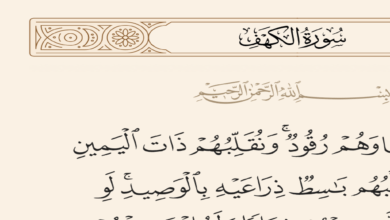 سُورَةُ الكَهْفِ
بِسْمِ اللَّهِ الرَّحْمَٰنِ الرَّحِيمِ
وَهُمْ رُقُودٌ ۚ وَنُقَلِّبُهُمْ ذَاتَ الْيَمِينِ
بَاسِطٌ ذِرَاعَيْهِ بِالْوَصِيدِ ۚ لَوِ